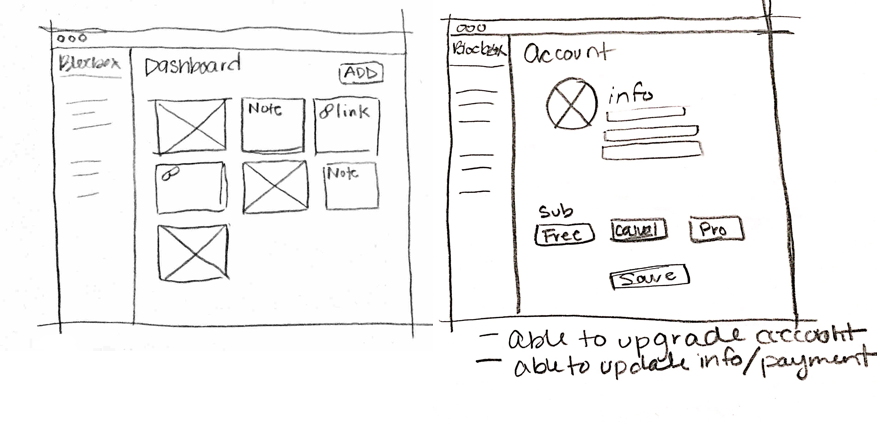 Blocbox
Dashboard
ADD
Note
link
Note
Blocbox
Account
info
Sub
Free
Cancel
Pro
Save
- able to upgrade account
- able to update info/payment